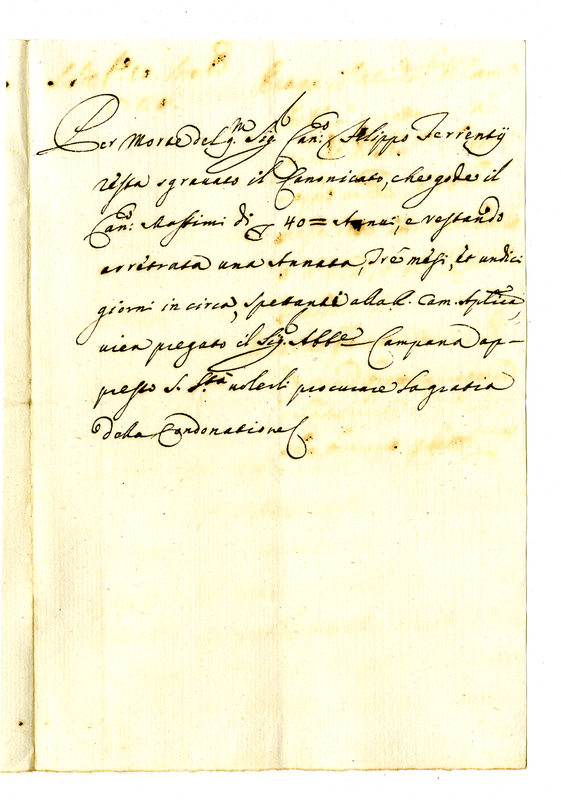 Per Morte del q.m Sig.r Can.co Filippo Terrentij
resta sgravato il Canonicato, che gode il
Can.co Massimi di 40= Annui, e restando
arretrata una Annata, Tre mesi, et undici
giorni in circa, spetanti alla R. Cam. Aplica,
vien pregato il Sig.r Abbe Campana ap-
presso S. Stà volerli procurare la gratia
della Condonatione